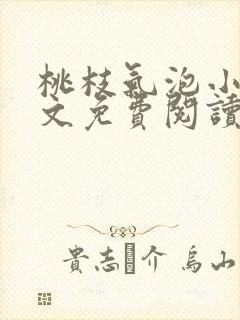 桃枝氣泡小
文免費閱讀
貴志 介 烏山